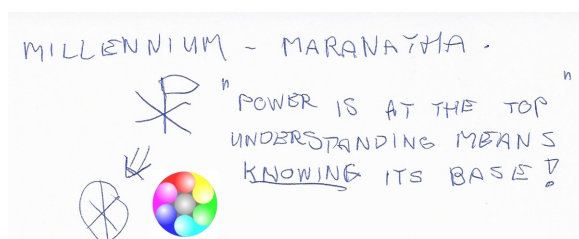 MILLENNIUM - MARANATHA.
"POWER IS AT THE TOP"
UNDERSTANDING MEANS
KNOWING ITS BASE!